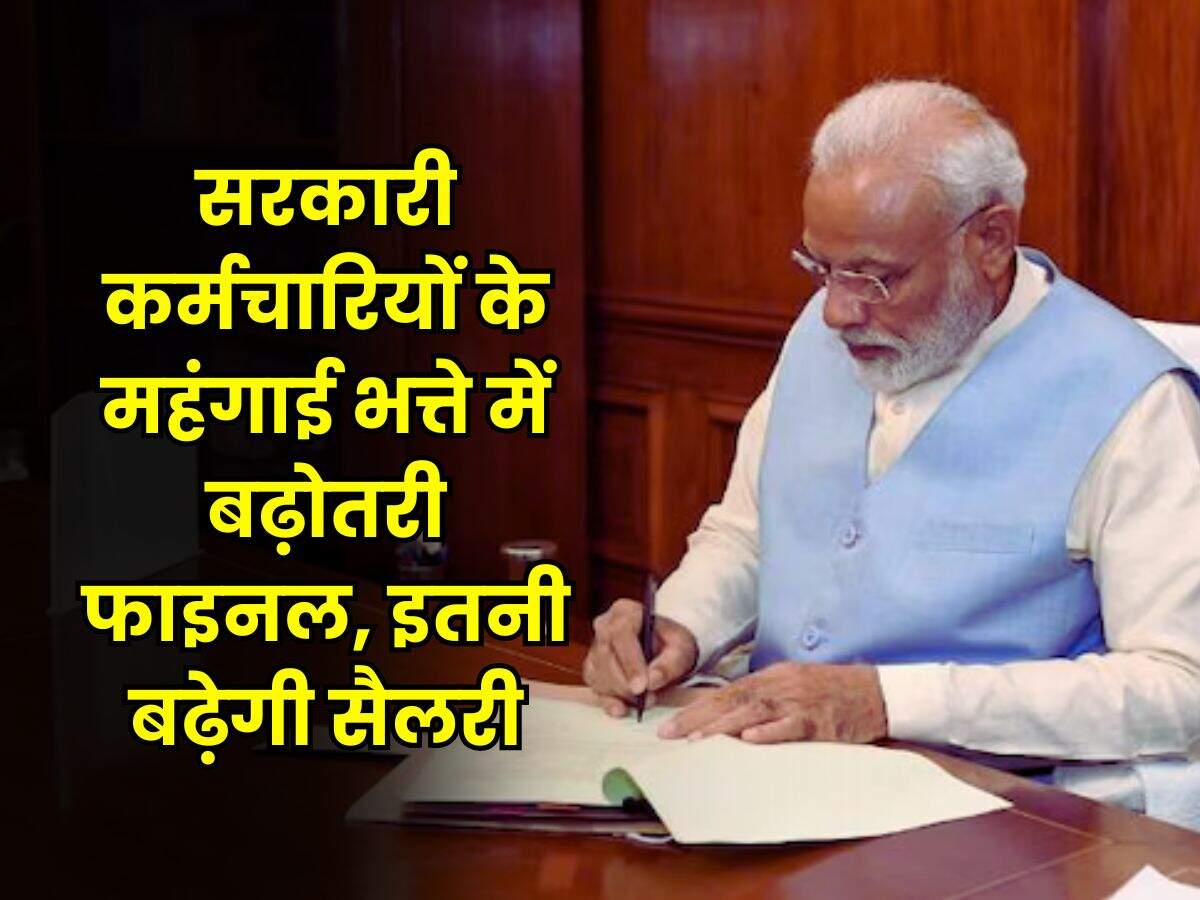 सरकारी
कर्मचारियों के
महंगाई भत्ते में
बढ़ोतरी
फाइनल, इतनी
बढ़ेगी सैलरी